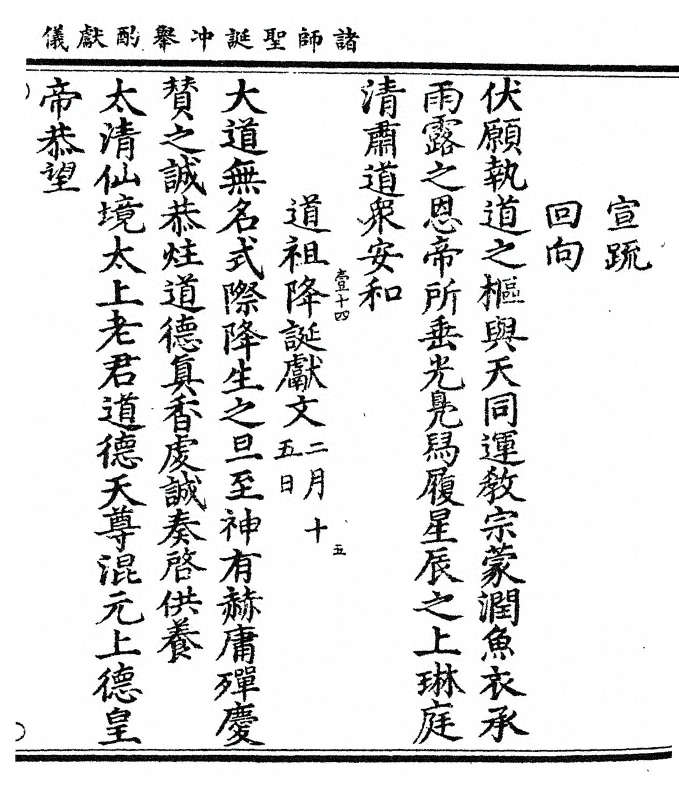 諸師聖誕冲舉酌獻儀
宣䟽
回向
伏願執道之樞與天同運教宗蒙潤魚衣承
雨露之恩帝所垂光鳧舄履星辰之上琳庭
清肅道衆安和
壹十四
五
道祖降誕獻文 二月十
五日
大道無名式際降生之旦至神有赫庸殫慶
贊之誠恭炷道德真香虔誠奏啓供養
太清仙境太上老君道德天尊混元上德皇
帝恭望